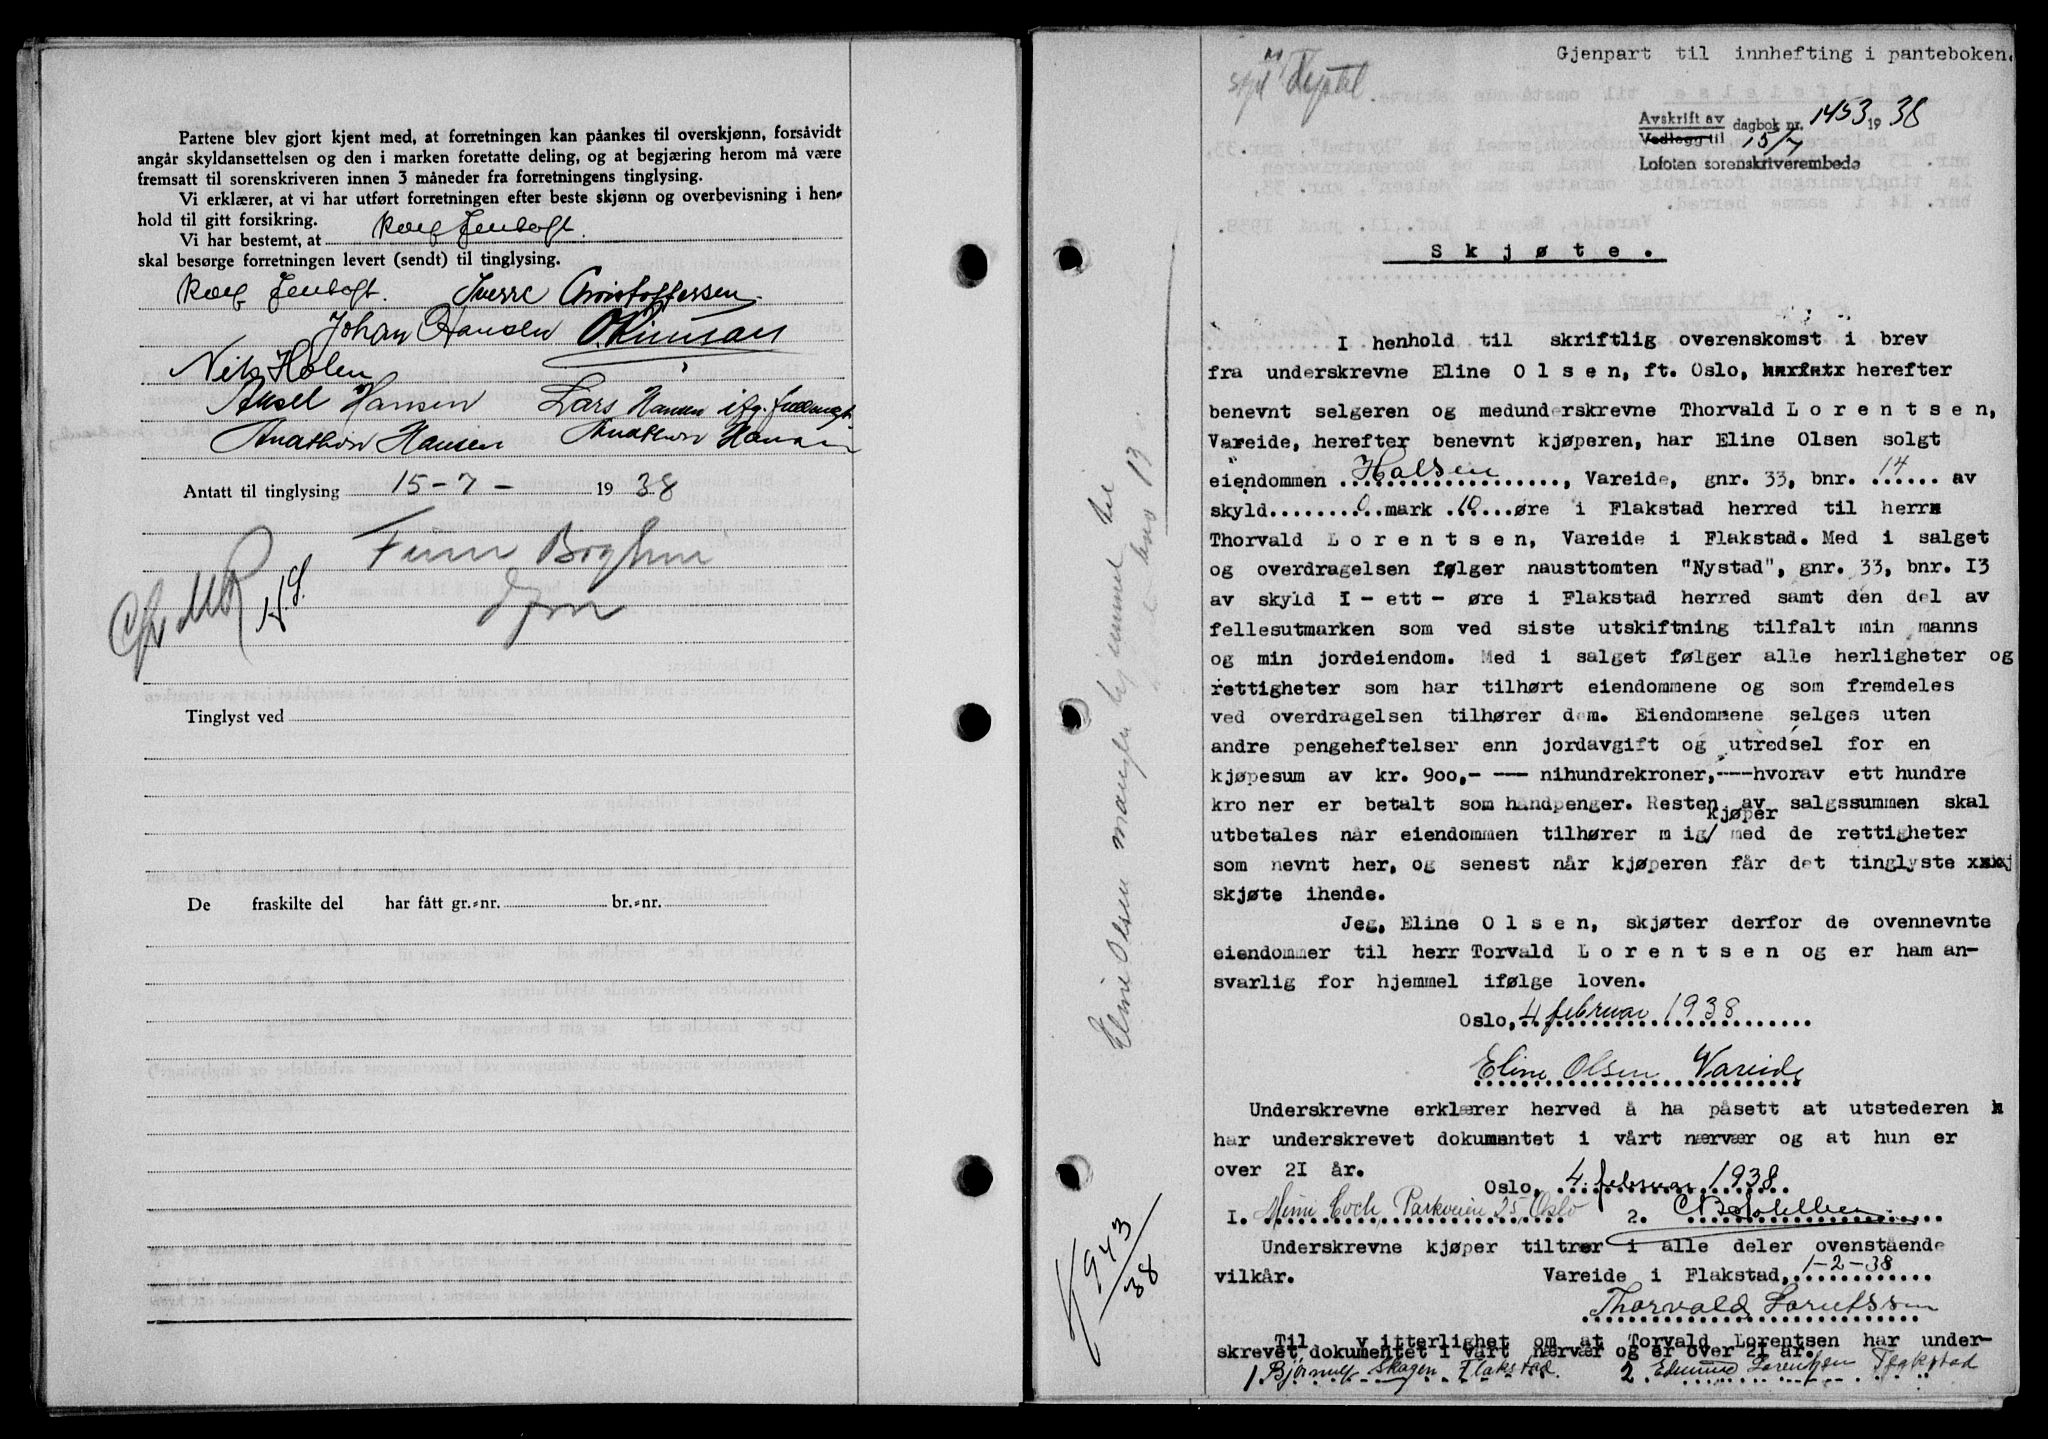 Partene blev gjort kjent med, at forretningen kan påankes til overskjønn, forsåvidt
angår skyldansettelsen og den i marken foretatte deling, og at begjæring herom må være
fremsatt til sorenskriveren innen 3 måneder fra forretningens tinglysing.
Vi erklærer, at vi har utført forretningen efter beste skjønn og overbevisning i hen-
hold til gitt forsikring.
Vi har bestemt, at
skal besørge forretningen levert (sendt) til tinglysing.
Sverre Christoffersen
Johan Hansen
Nils Holen
Aksel Hansen Lars Hansen
Anathon Hansen Anathon Hansen
Antatt til tinglysing 15-7- 1938
Tinglyst ved
De fraskilte del har fått gr.-nr. br.-nr.
Gjenpart til innhefting i panteboken.
Avskrift av
Vedlegg til dagbok nr. 1453 1938
15/7
Lofoten sorenskriverembede
Skjøte.
I henhold til skriftlig overenskomst i brev
fra underskrevne Eline Olsen, ft. Oslo, herefter
benevnt selgeren og medunderskrevne Thorvald Lorentsen,
Vareide, herefter benevnt kjøperen, har Eline Olsen solgt
eiendommen Halsen, Vareide, gnr. 33, bnr. 14 av
skyld 0 mark 10 øre i Flakstad herred til herr
Thorvald Lorentsen, Vareide i Flakstad. Med i salget
og overdragelsen følger nausttomten "Nystad", gnr. 33, bnr. I3
av skyld I - ett - øre i Flakstad herred samt den del av
fellesutmarken som ved siste utskiftning tilfalt min manns
og min jordeiendom. Med i salget følger alle herligheter og
rettigheter som har tilhørt eiendommene og som fremdeles
ved overdragelsen tilhører dem. Eiendommene selges uten
andre pengeheftelser enn jordavgift og utredsel for en
kjøpesum av kr. 900,- --- nihundrekroner,----hvorav ett hundre
kroner er betalt som håndpenger. Resten av salgssummen skal
utbetales når eiendommen tilhører mig/ kjøper med de rettigheter
som nevnt her, og senest når kjøperen får det tinglyste
skjøte ihende.
Jeg, Eline Olsen, skjøter derfor de ovennevnte
eiendommer til herr Torvald Lorentsen og er ham an-
svarlig for hjemmel ifølge loven.
Oslo, 4 februar 1938
Eline Olsen Vareide
Underskrevne erklærer herved å ha påsett at utstederen
har underskrevet dokumentet i vårt nærvær og at hun er
over 2I år.
Oslo, 4. februar 1938
I. Mimi Koch, Parkveien 25, Oslo 2.
Underskrevne kjøper tiltrer i alle deler ovenstående
vilkår. Vareide i Flakstad, 1-2-38
Thorvald Lorentsen
Til vitterlighet om at Torvald Lorentsen har under-
skrevet dokumentet i vårt nærvær og er over 2I år.
1 Bjørnulf Skagen Flakstad. 2 Edmund Lorentzen Flakstad
Eline Olsen mangler hjemmel til
bnr 13
943/38